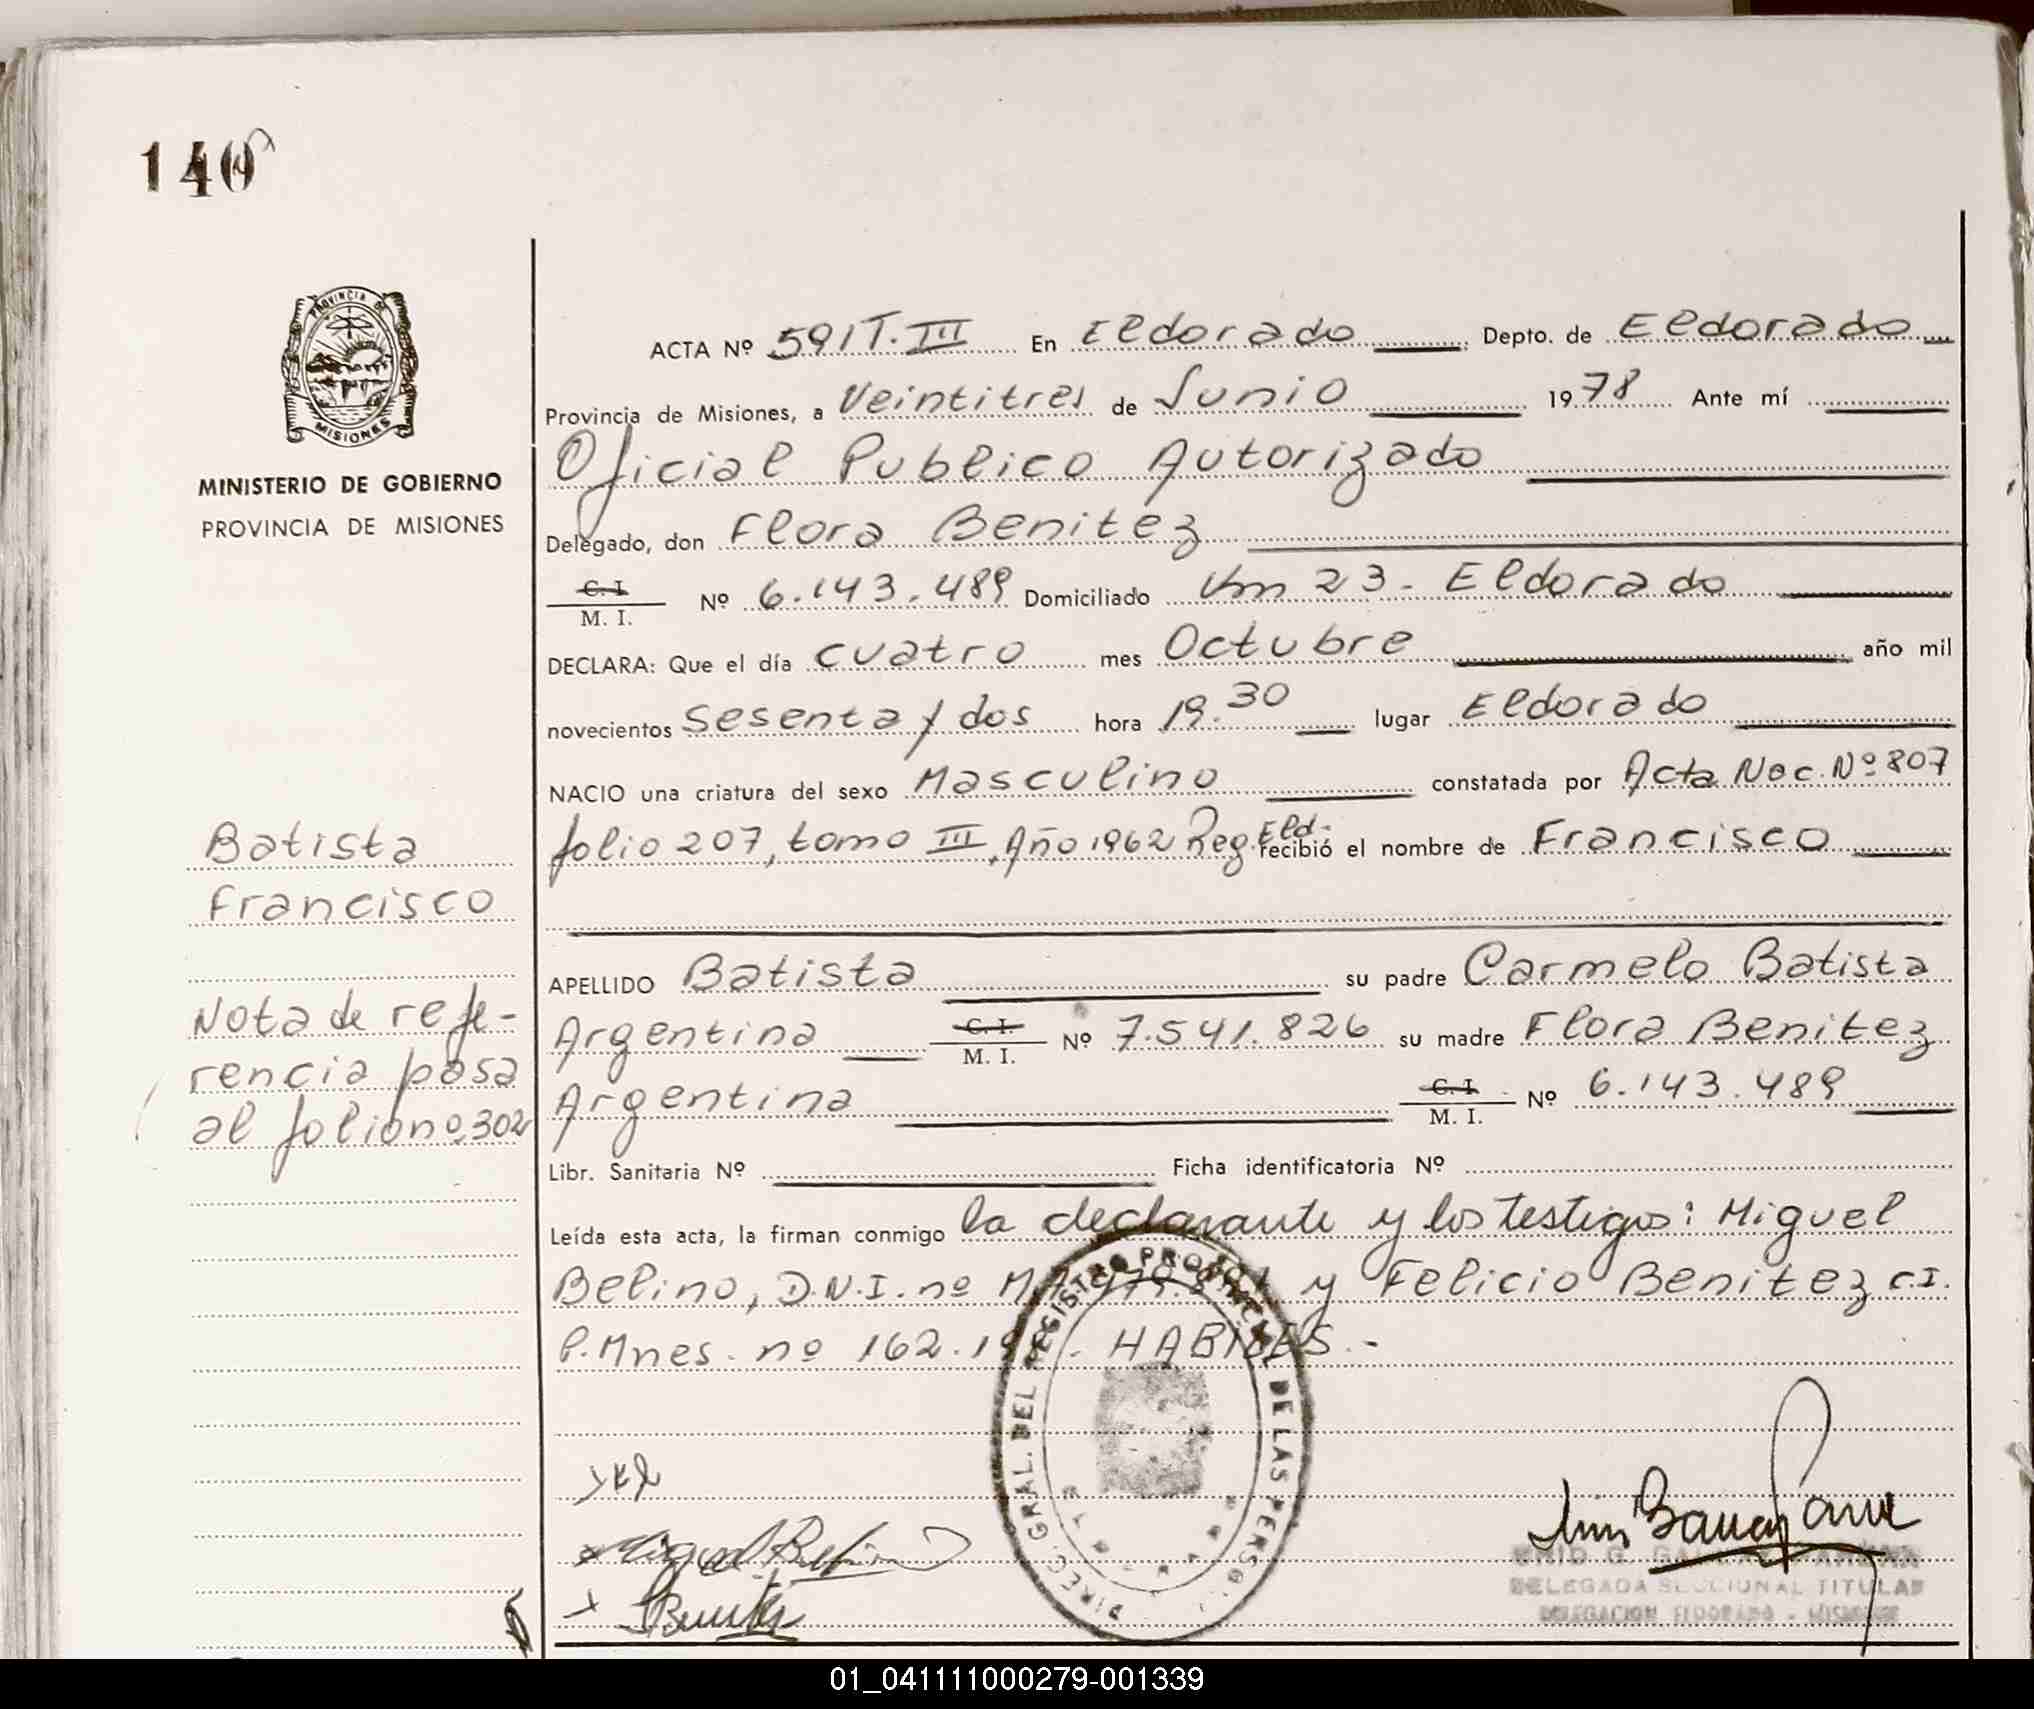 140
PROVINCIA DE
MISIONES
MINISTERIO DE GOBIERNO
PROVINCIA DE MISIONES
ACTA Nº 591T.III En Eldorado Depto. de Eldorado
Provincia de Misiones, a Veintitres de Junio 1978 Ante mí
Oficial Publico Autorizado
Delegado, don Flora Benitez
C. I. / M. I. Nº 6.143.489 Domiciliado Km 23 - Eldorado
DECLARA: Que el día cuatro mes Octubre año mil
novecientos Sesenta y dos hora 19.30 lugar Eldorado
NACIO una criatura del sexo Masculino constatada por Acta Nac. Nº 807
folio 207, tomo III, Año 1962 Reg. Eld. recibió el nombre de Francisco
Batista
Francisco
APELLIDO Batista su padre Carmelo Batista
Nota de refe-
Argentina C. I. / M. I. Nº 7.541.826 su madre Flora Benitez
rencia pasa
Argentina C. I. / M. I. Nº 6.143.489
al folio nº 302
Libr. Sanitaria Nº Ficha identificatoria Nº
Leída esta acta, la firman conmigo la declarante y los testigos: Miguel
Belino, D.N.I. nº y Felicio Benitez C.I.
P. Mnes. nº 162. HABILES.-
DIREC. GRAL. DEL REGISTRO DE LAS PERSO
Miguel Belino
Benitez
DELEGADA SECCIONAL TITULAR
DELEGACION ELDORADO - MISIONES
01_041111000279-001339